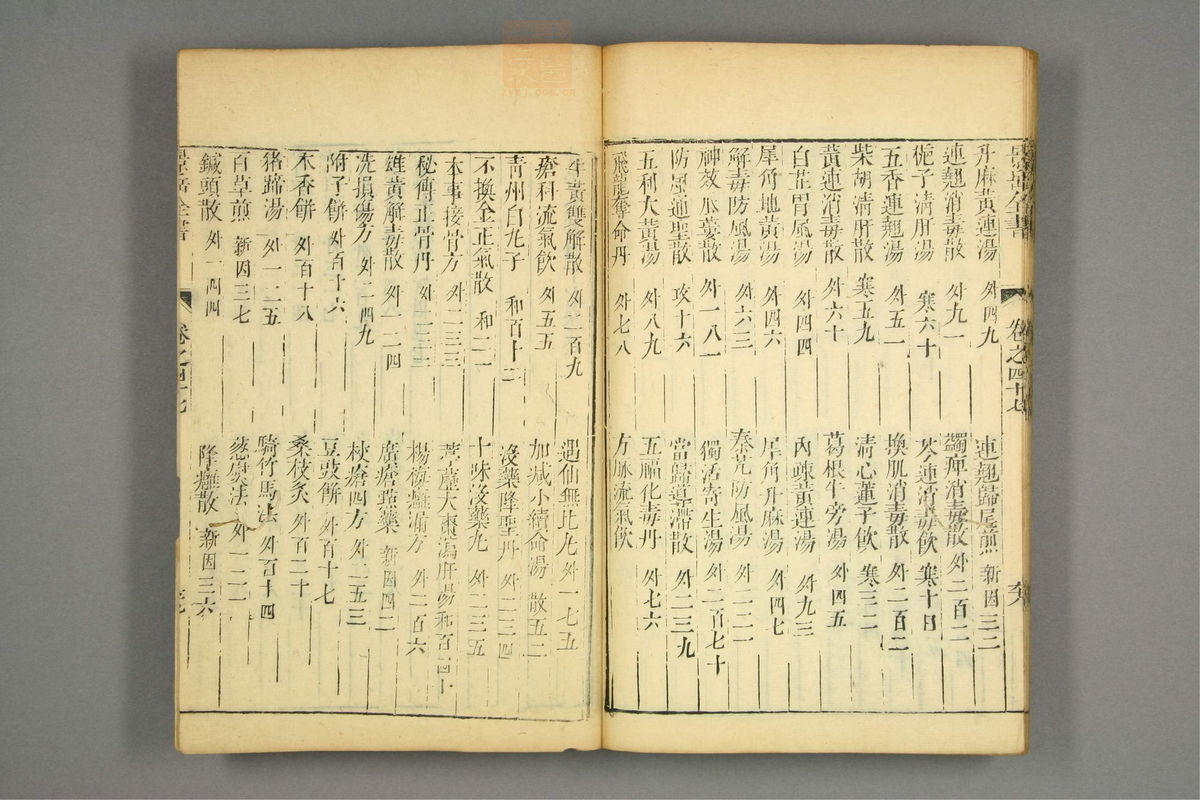 景岳全書
卷之四十七
升麻黃連湯 外四九
連翹歸尾煎 新因三二
連翹消毒散 外九一
蠲痺消毒散 外二百二
梔子清肝湯 寒六十
芩連消毒飲 寒十四
五香連翹湯 外五一
換肌消毒散 外二百二
柴胡清肝散 寒五九
清心蓮子飲 寒三二
黃連消毒散 外六十
葛根牛蒡湯 外四五
白芷胃風湯 外四四
內疎黃連湯 外九三
犀角地黃湯 外四六
犀角升麻湯 外四七
解毒防風湯 外六三
秦艽防風湯 外二二一
神效瓜蔞散 外一八一
獨活寄生湯 外二百七十
防風通聖散 攻十六
當歸導滯散 外二三九
五利大黃湯 外八九
五福化毒丹 外七六
飛龍奪命丹 外七八
方脉流氣飲
牛黃雙解散 外二百九
遇仙無比丸 外一七五
瘡科流氣飲 外五五
加減小續命湯 散五二
青州白丸子 和百十二
沒藥降聖丹 外二三四
不換金正氣散 和二一
十味沒藥丸 外二三五
本事接骨方 外二三三
蘆薈大棗瀉肝湯
秘傳正骨丹
楊梅癰漏方 外二百六
雄黃解毒散 外二二四
廣瘡點藥 新因四二
洗損傷方 外二四九
杖瘡四方 外二五三
附子餅 外百十六
豆豉餅 外百十七
木香餅 外百十八
桑枝灸 外百二十
猪蹄湯 外一二五
騎竹馬法 外百十四
百草煎 新因三七
葱熨法 外一二一
鍼頭散 外一四四
降癰散 新因三六
景岳全書
卷之四十七